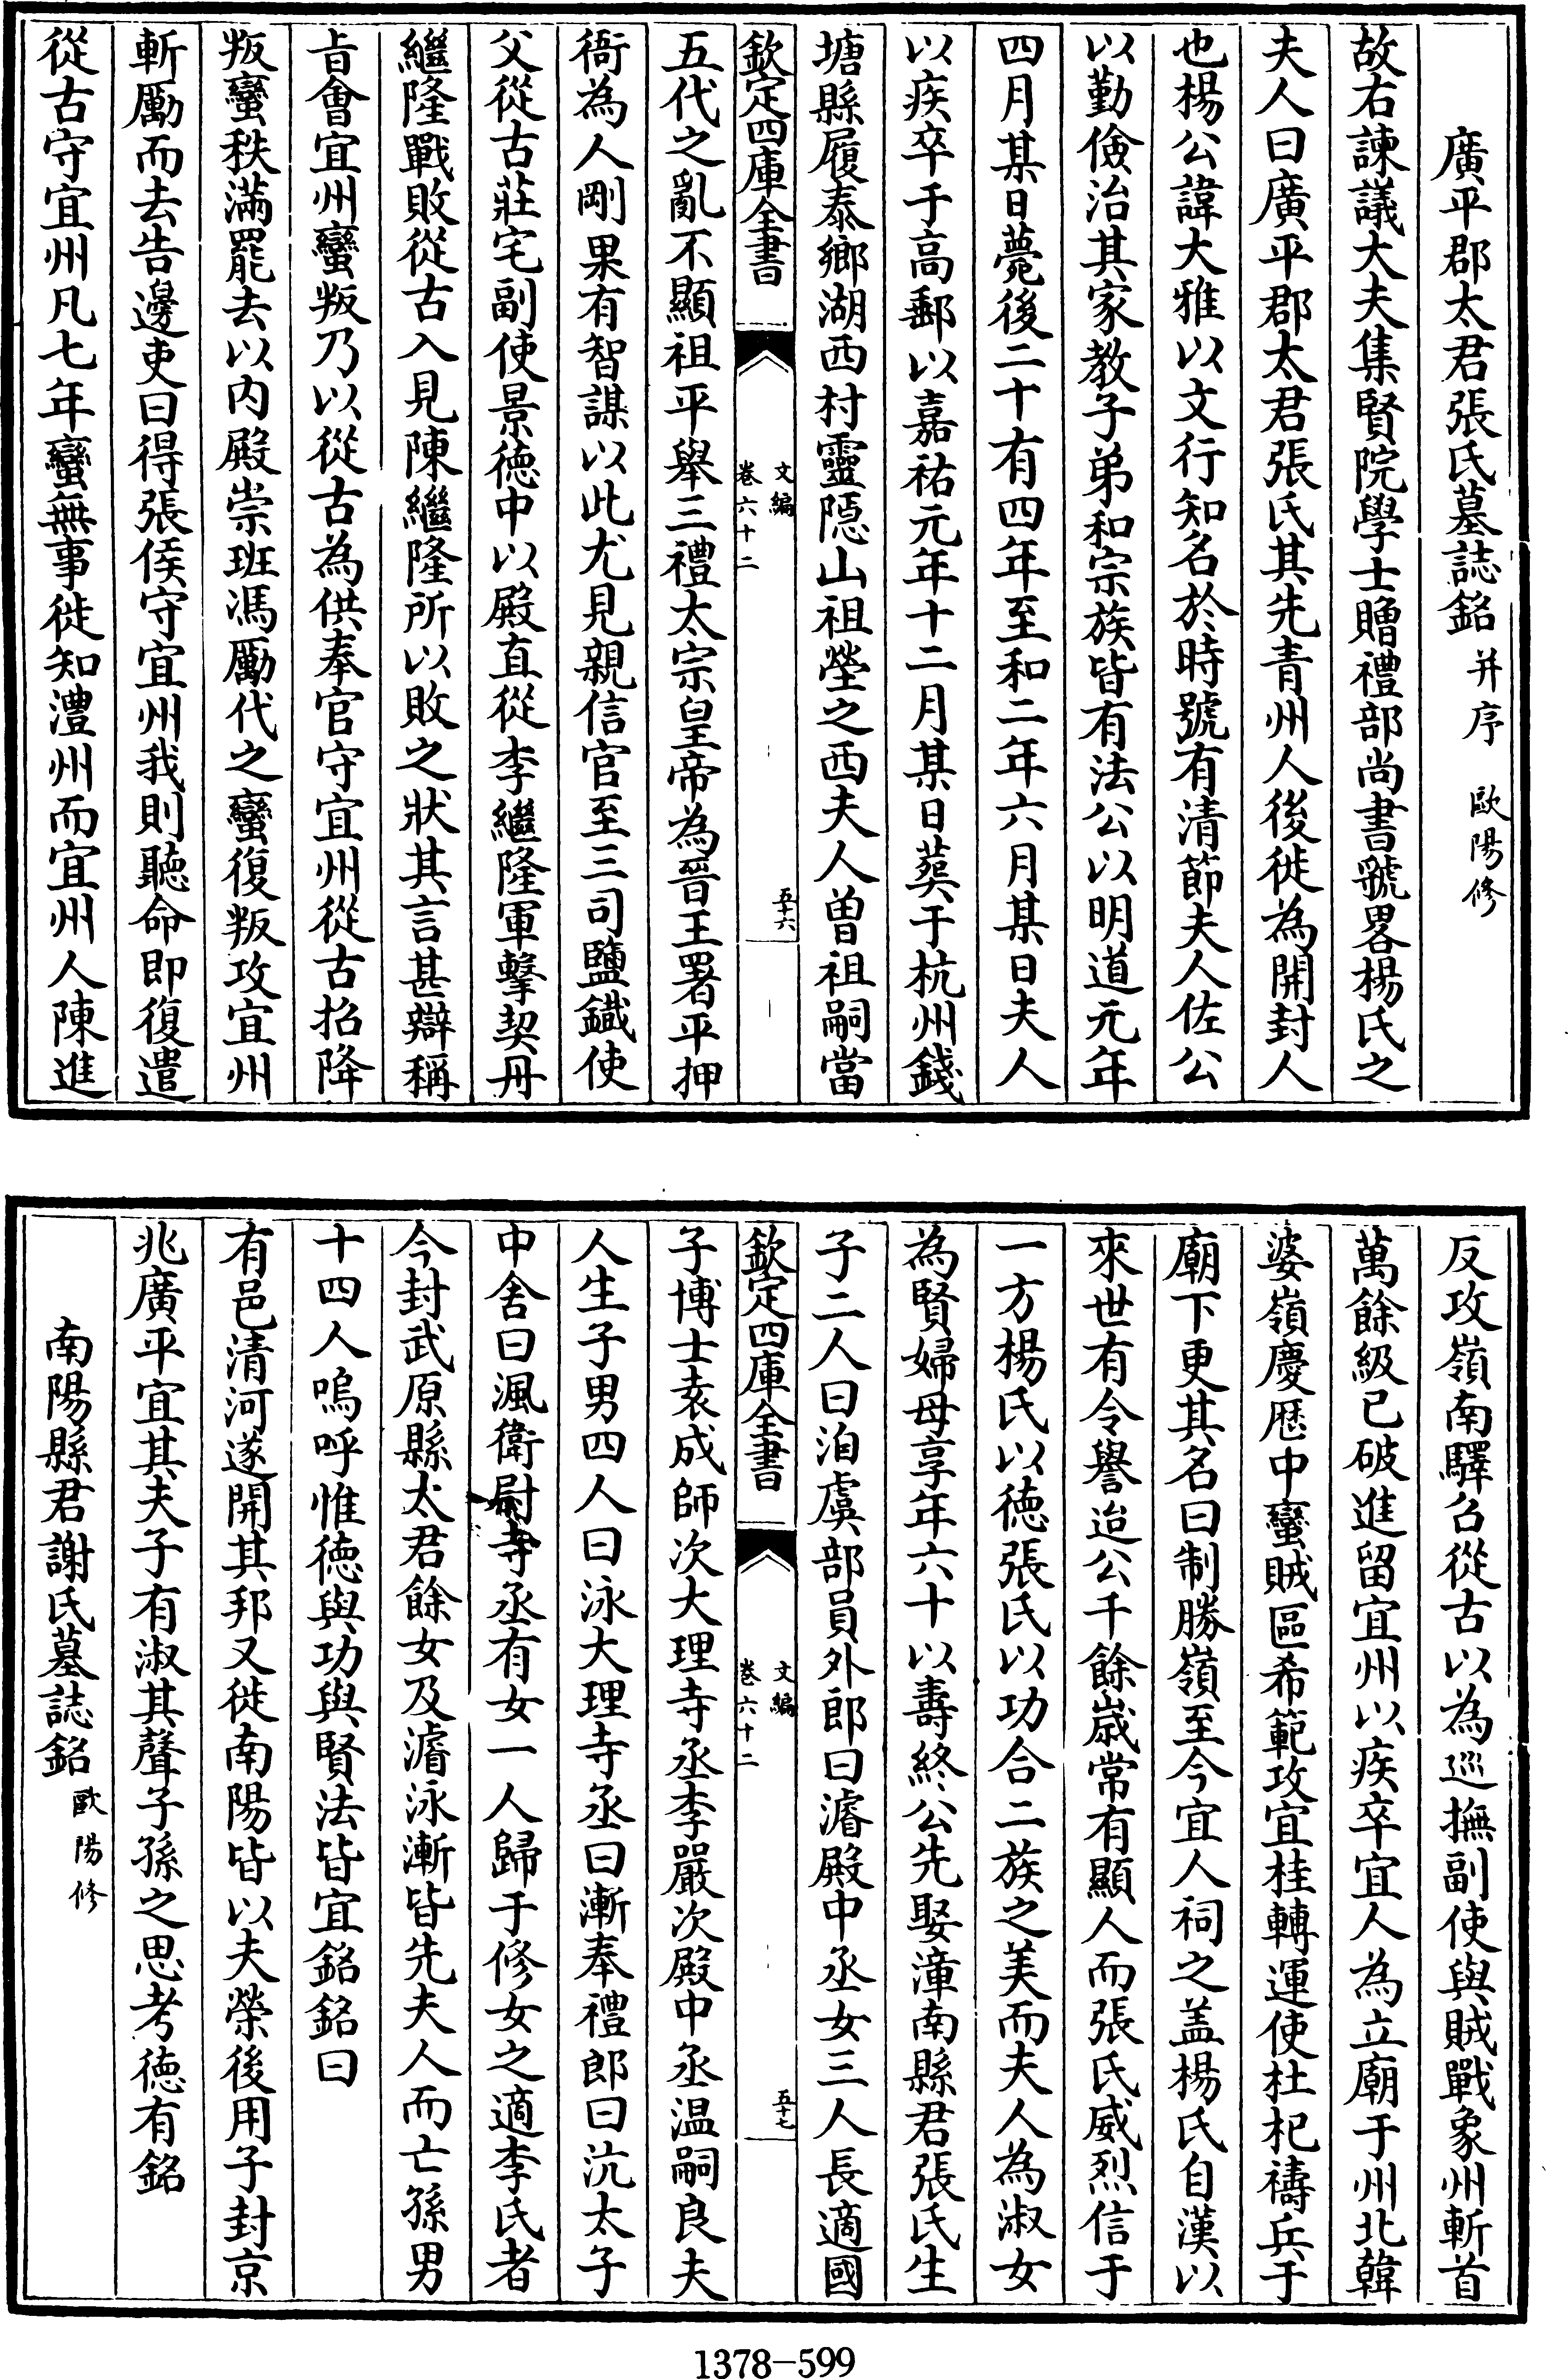 廣平郡太君張氏墓誌銘并序　歐陽修
故右諫議大夫集賢院學士贈禮部尚書虢畧楊氏之
夫人曰廣平郡太君張氏其先青州人後徙為開封人
也楊公諱大雅以文行知名於時號有清節夫人佐公
以勤儉治其家教子弟和宗族皆有法公以明道元年
四月某日薨後二十有四年至和二年六月某日夫人
以疾卒于高郵以嘉祐元年十二月某日葬于杭州錢
塘縣履泰鄉湖西村靈隱山祖塋之西夫人曾祖嗣當
欽定四庫全書
文編
卷六十二
五十六
五代之亂不顯祖平舉三禮太宗皇帝為晉王署平押
衙為人剛果有智謀以此尤見親信官至三司鹽鐵使
父從古莊宅副使景德中以殿直從李繼隆軍擊契丹
繼隆戰敗從古入見陳繼隆所以敗之狀其言甚辯稱
旨會宜州蠻叛乃以從古為供奉官守宜州從古招降
叛蠻秩滿罷去以內殿崇班馮勵代之蠻復叛攻宜州
斬勵而去告邊吏曰得張侯守宜州我則聽命即復遣
從古守宜州凡七年蠻無事徙知澧州而宜州人陳進
反攻嶺南驛召從古以為巡撫副使與賊戰象州斬首
萬餘級已破進留宜州以疾卒宜人為立廟于州北韓
婆嶺慶厯中蠻賊區希範攻宜桂轉運使杜杞禱兵于
廟下更其名曰制勝嶺至今宜人祠之盖楊氏自漢以
來世有令譽迨公千餘歲常有顯人而張氏威烈信于
一方楊氏以德張氏以功合二族之美而夫人為淑女
為賢婦母享年六十以壽終公先娶漳南縣君張氏生
子二人曰洎虞部員外郎曰濬殿中丞女三人長適國
欽定四庫全書
文編
卷六十二
五十七
子博士袁成師次大理寺丞李嚴次殿中丞温嗣良夫
人生子男四人曰泳大理寺丞曰漸奉禮郎曰沆太子
中舍曰渢衛尉寺丞有女一人歸于修女之適李氏者
今封武原縣太君餘女及濬泳漸皆先夫人而亡孫男
十四人嗚呼惟德與功與賢法皆宜銘銘曰
有邑清河遂開其邦又徙南陽皆以夫榮後用子封京
兆廣平宜其夫子有淑其聲子孫之思考德有銘
南陽縣君謝氏墓誌銘　歐陽修
1378-599